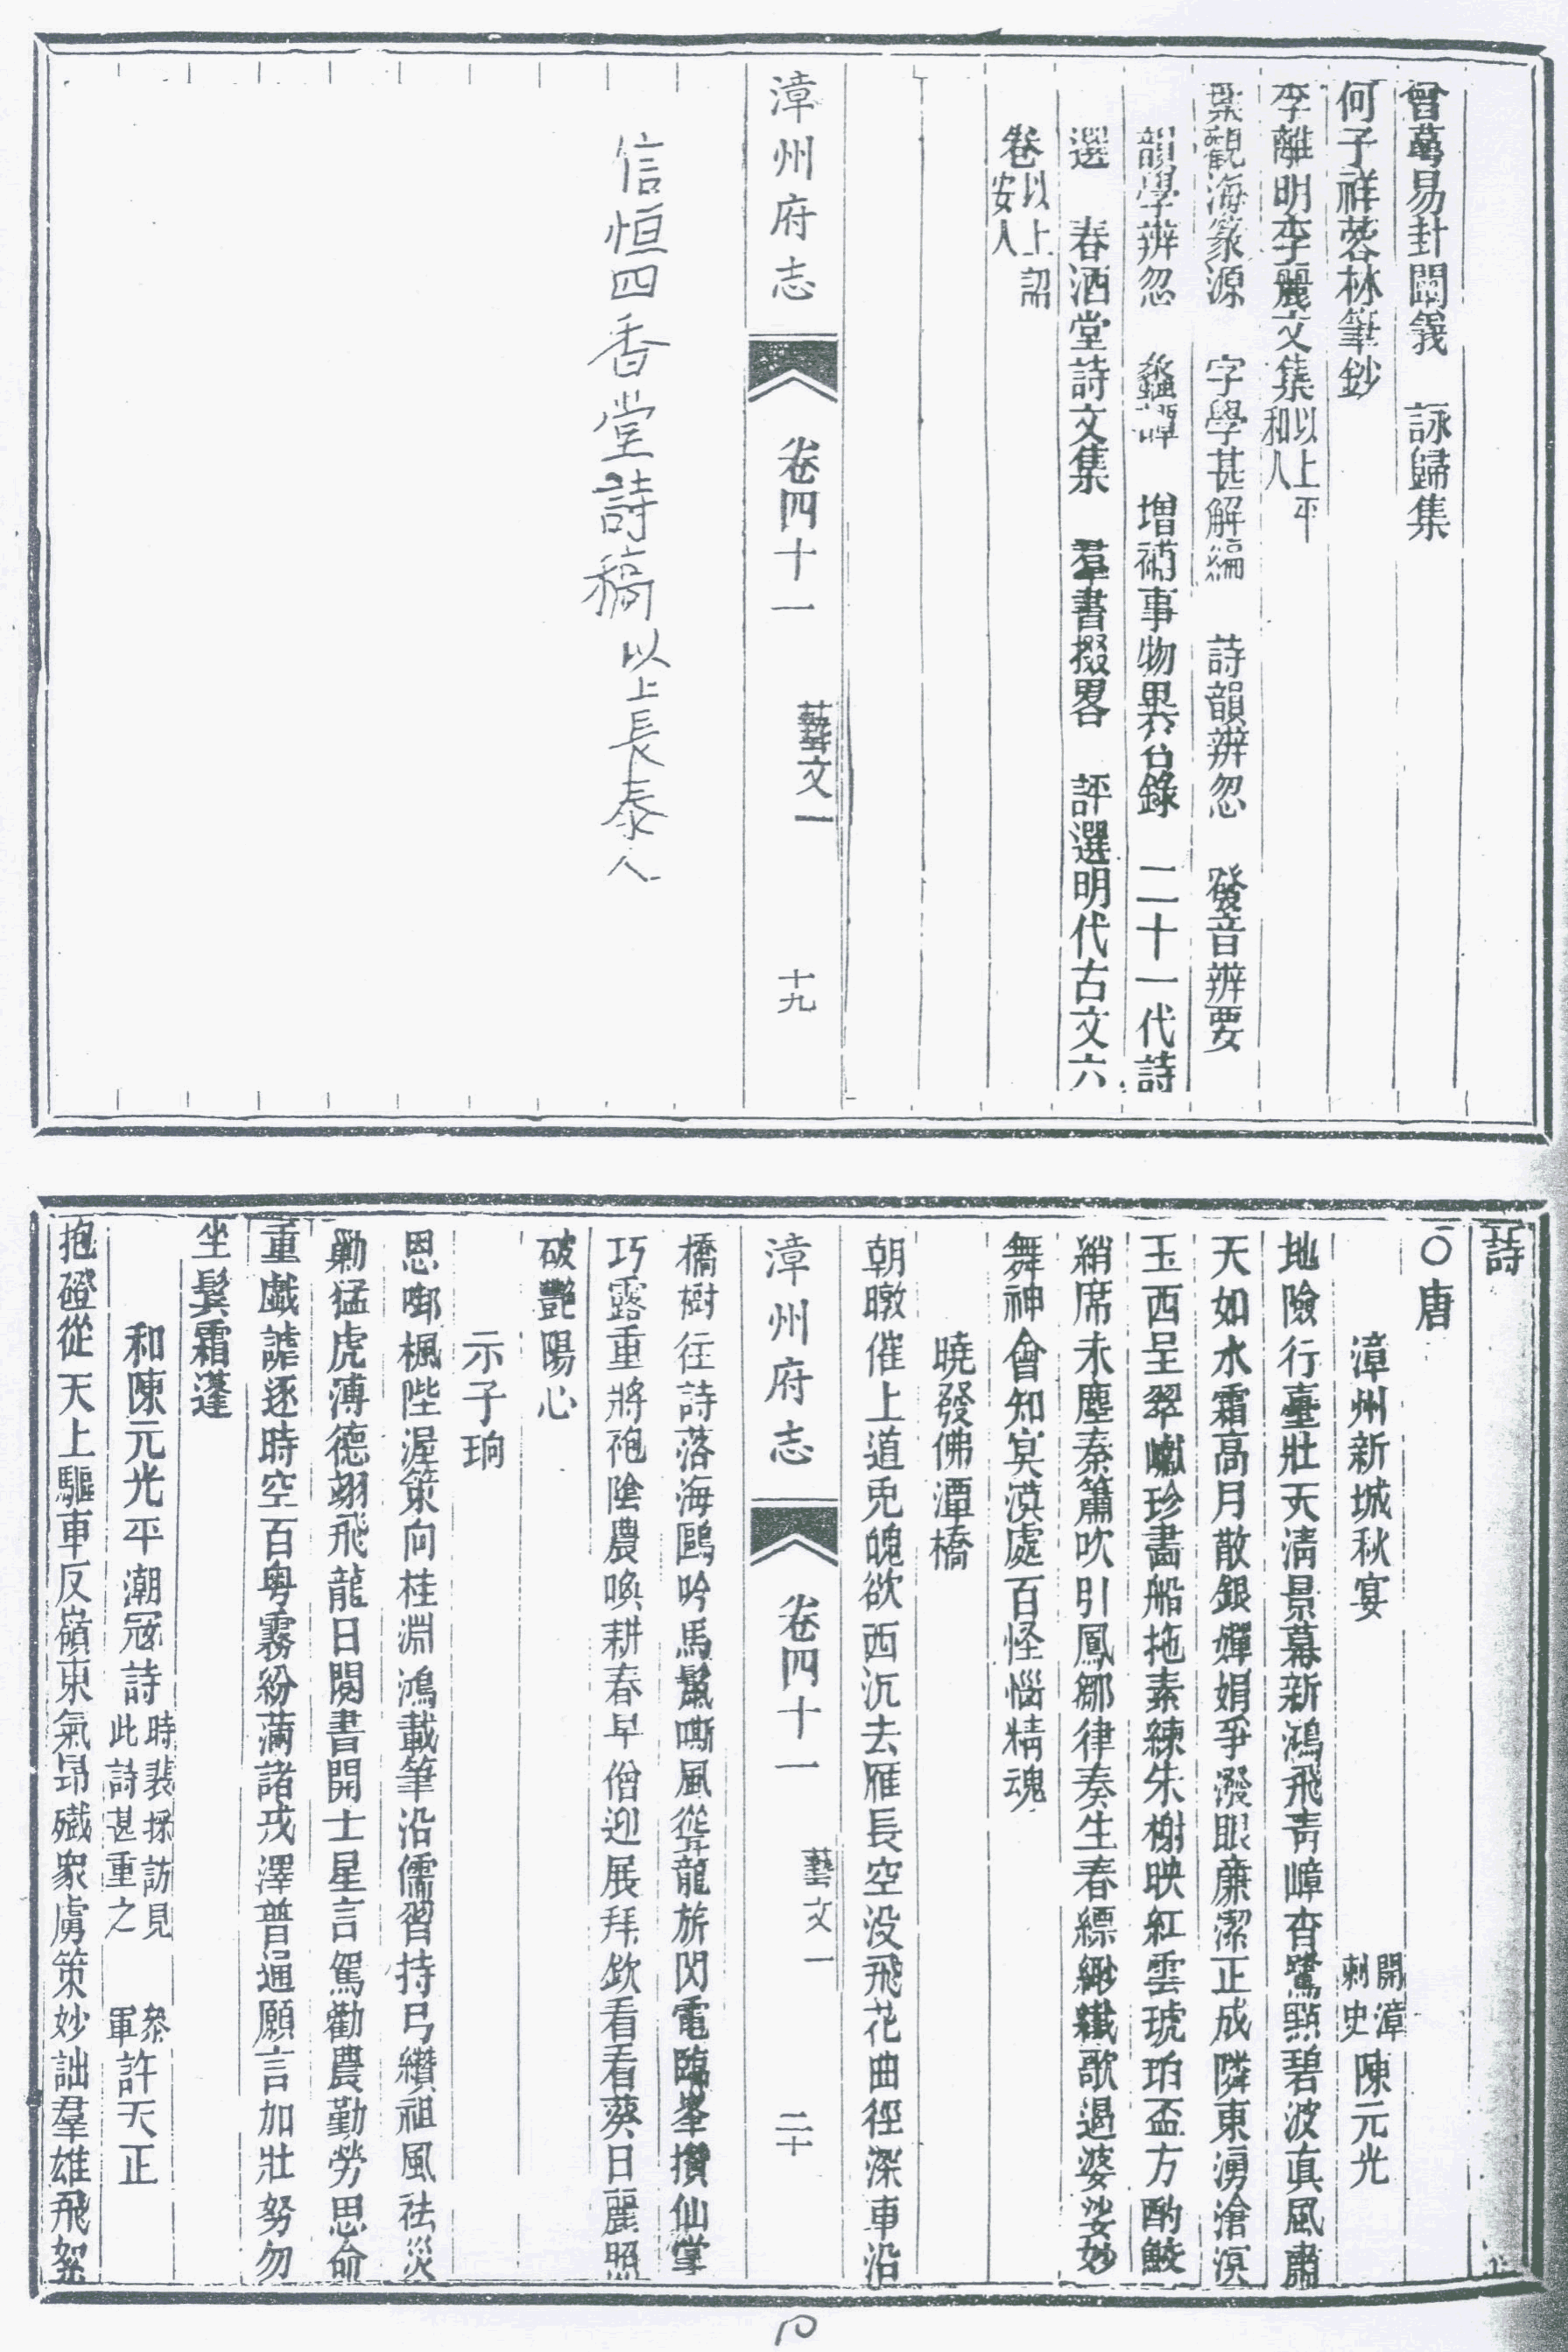 曾萬易卦闡義　詠歸集
何子祥蓉林筆鈔
李離明李麗文集以上平和人
葉觀海篆源　字學甚解編　詩韻辨忽　發音辨要
韻學辨忽　蠡譚　增補事物異名錄　二十一代詩
選　春酒堂詩文集　羣書掇畧　評選明代古文六
卷以上詔安人
漳州府志　卷四十一　藝文一　十九
信恒四香堂詩稿以上長泰人
詩
○唐
漳州新城秋宴　開漳刺史陳元光
地險行臺壯天淸景幕新鴻飛靑嶂杳鷺點碧波眞風肅
天如水霜高月散銀嬋娟爭潑眼廉潔正成隣東湧滄溟
玉西呈翠巘珍畵船拖素練朱榭映紅雲琥珀盃方酌鮫
綃席未塵秦簫吹引鳳鄒律奏生春縹緲纖歌遏婆娑妙
舞神會知㝠漠處百怪惱精魂
曉發佛潭橋
朝暾催上道兎魄欲西沉去雁長空没飛花曲徑深車沿
漳州府志　卷四十一　藝文一　二十
橋樹往詩落海鷗吟馬鬣嘶風聳龍旂閃電臨峯攢仙掌
巧露重將袍陰農喚耕春早僧迎展拜欽看看葵日麗照
破艷陽心
示子珦
恩啣楓陛渥策向桂淵鴻載筆沿儒習持弓纘祖風祛災
勦猛虎溥德翊飛龍日閱書開士星言駕勸農勤勞思命
重戲謔逐時空百粤霧紛滿諸戎澤普通願言加壯努勿
坐鬢霜蓬
和陳元光平潮寇詩時裴採訪見此詩甚重之　叅軍許天正
抱磴從天上驅車反嶺東氣昻殲衆虜策妙詘羣雄飛絮